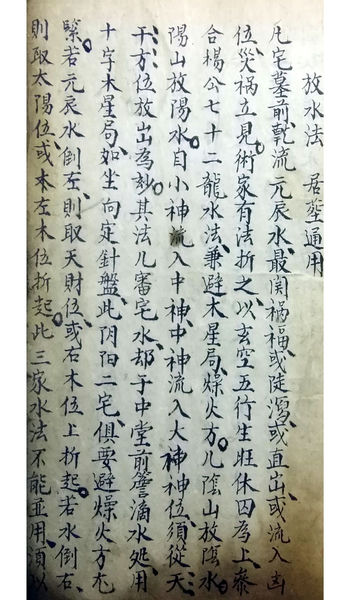 放水法 居塋通用
凡宅墓前乾流元辰水最関禍福或陡瀉或直出或流入凶
位災禍立見術家有法折之以玄空五行生旺休囚為上叅
合楊公七十二龍水法兼避木星局燥火方凡陰山放陰水
陽山放陽水自小神流入中神中神流入大神神位須從天
干方位放出為玅其法凡審宅水却于中堂前簷滴水処用
十字木星局如坐向定針盤此阴阳二宅俱要避燥火方尤
緊若元辰水倒左則取天財位或右木位上折起若水倒右
則取太陽位或本左木位折起此三家水法不能並用須以